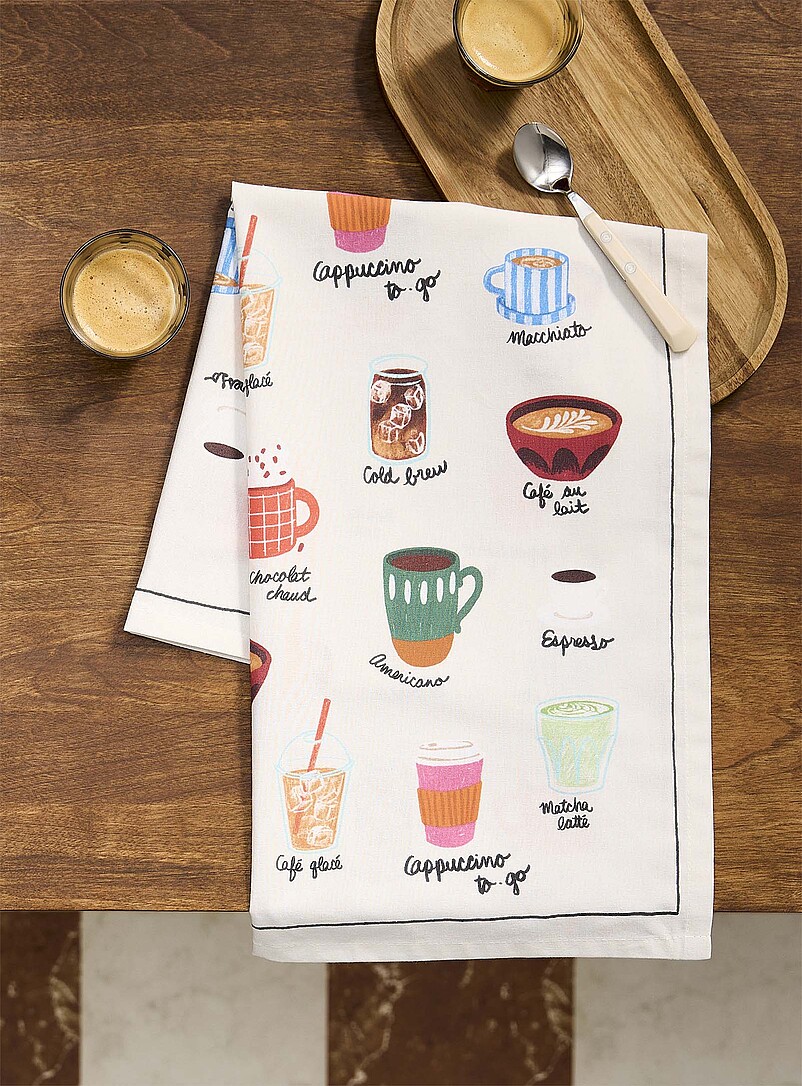 Cappuccino
to·go
Macchiato
glacé
Cold brew
Café au
lait
chocolat
chaud
Espresso
Americano
Matcha
latté
Café glacé
Cappuccino
to·go